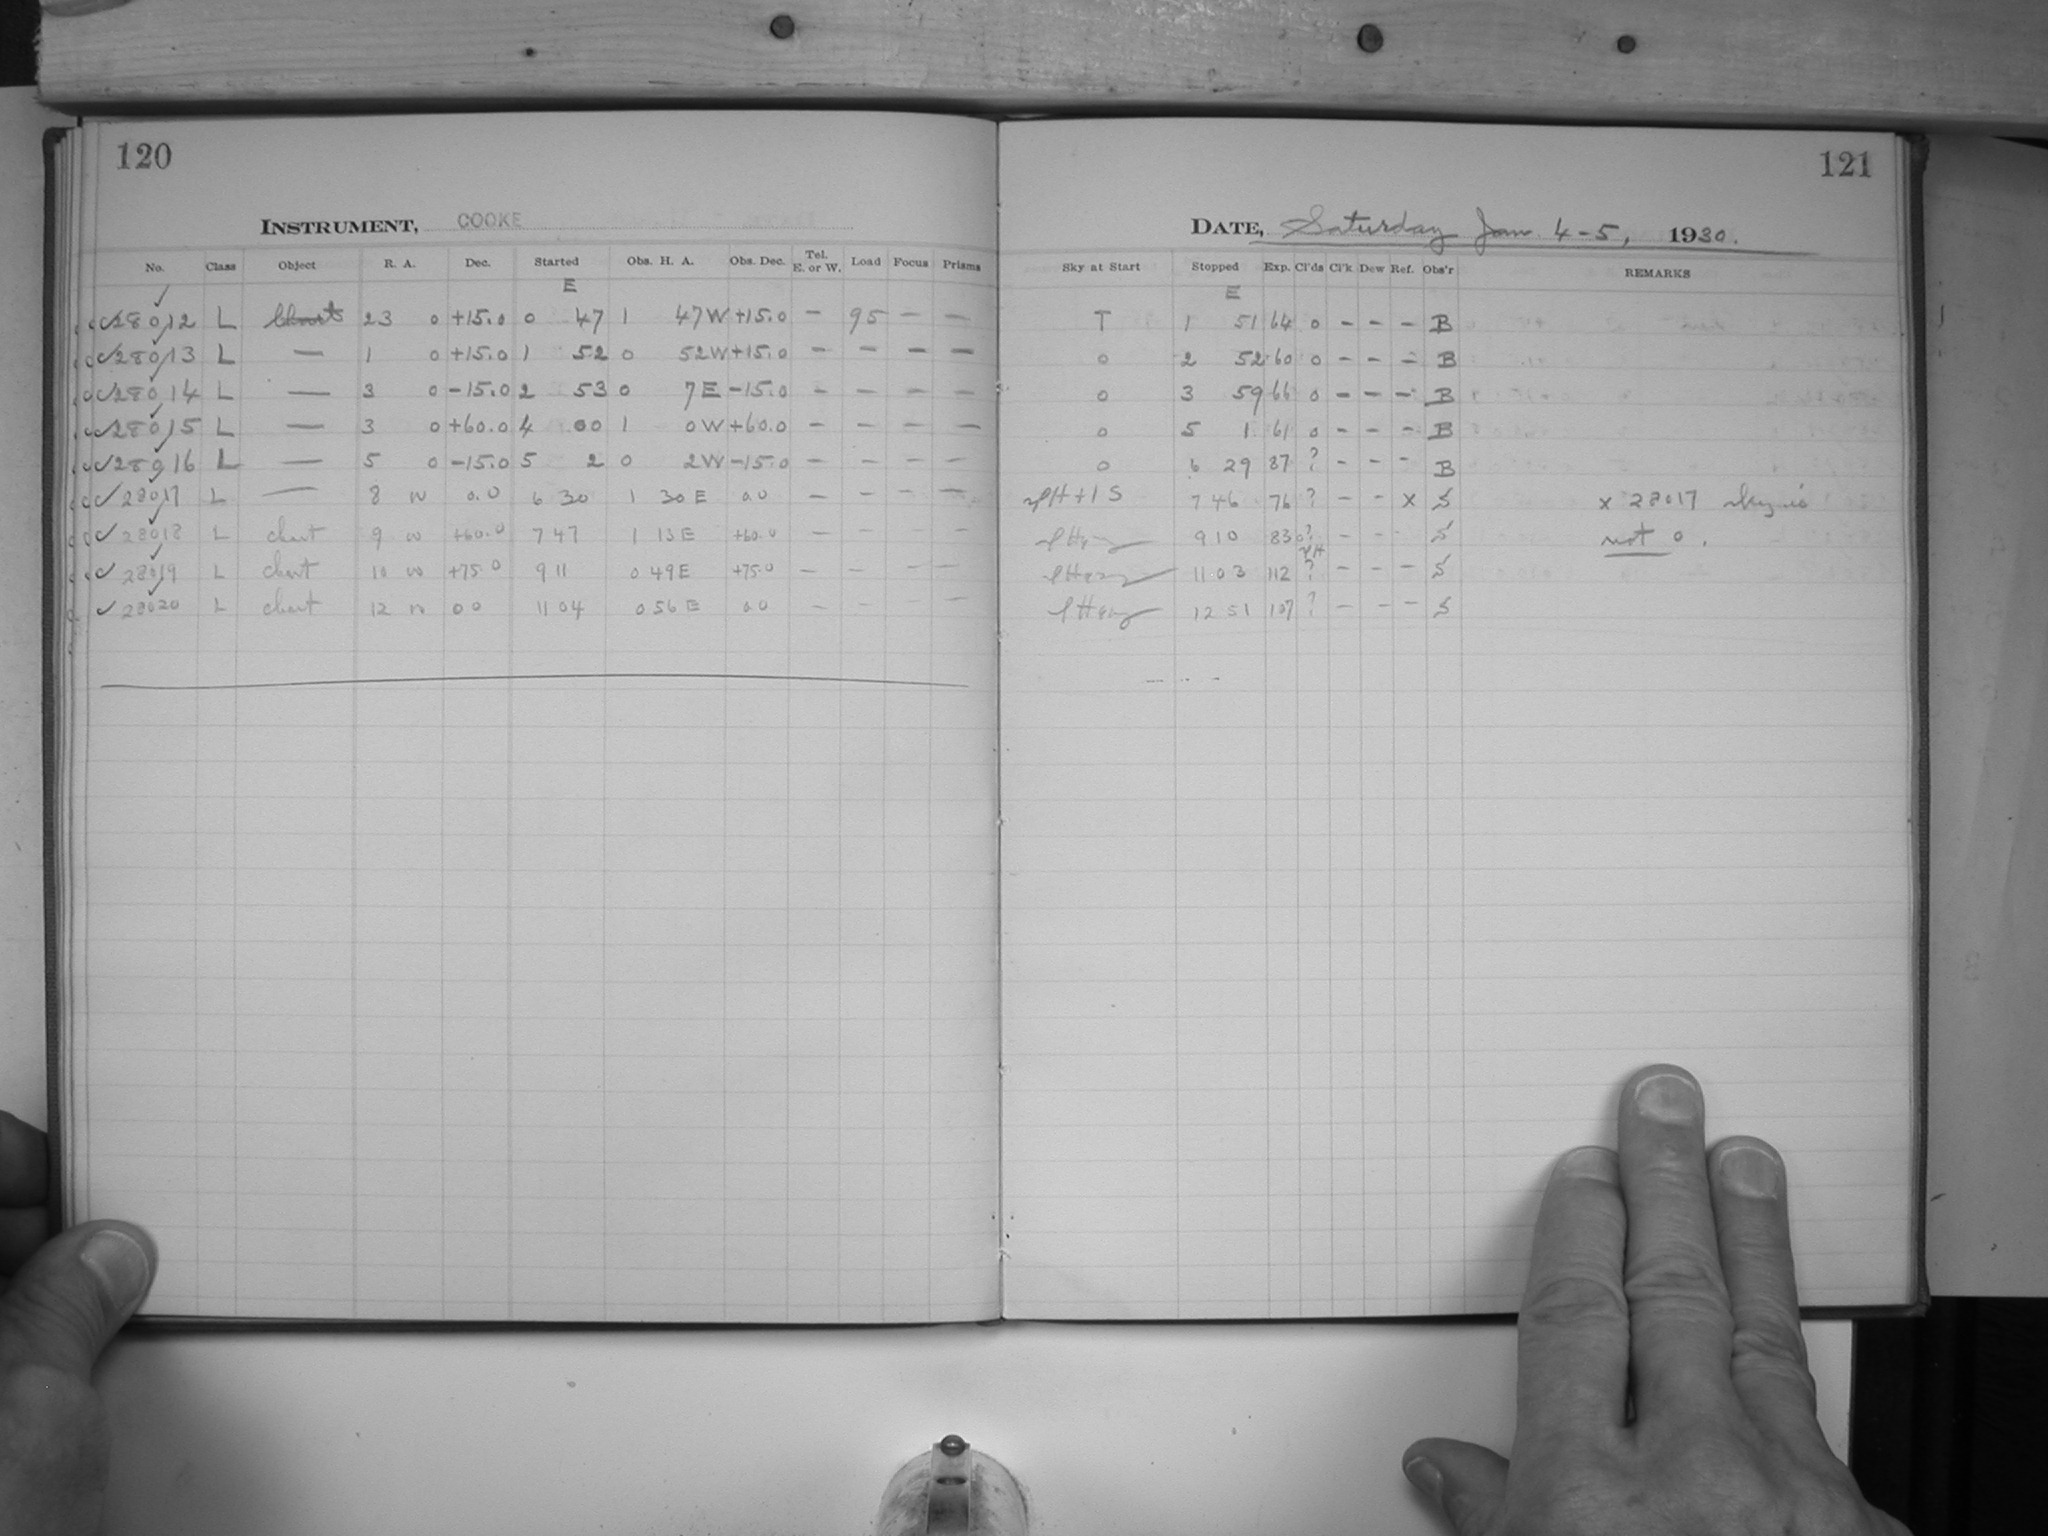 120
INSTRUMENT, COOKE
No. Class Object R. A. Dec. Started Obs. H. A. Obs. Dec. Tel. E. or W. Load Focus Prisms
E
28012 L Chart 23 0 +15.0 0 47 1 47W +15.0 — 95 — —
28013 L — 1 0 +15.0 1 52 0 52W +15.0 — — — —
28014 L — 3 0 -15.0 2 53 0 7E -15.0 — — — —
28015 L — 3 0 +60.0 4 00 1 0W +60.0 — — — —
28016 L — 5 0 -15.0 5 2 0 2W -15.0 — — — —
28017 L — 8 0.0 6 30 1 30E 0.0 — — — —
28018 L chart 9 +60.0 7 47 1 13E +60.0 — — — —
28019 L chart 10 +75.0 9 11 0 49E +75.0 — — — —
28020 L chart 12 00 11 04 0 56E 0.0 — — — —
121
DATE, Saturday Jan. 4-5, 1930.
Sky at Start Stopped Exp. Cl'ds Cl'k Dew Ref. Obs'r REMARKS
E
T 1 51 64 0 — — — B
0 2 52 60 0 — — — B
0 3 59 66 0 — — — B
0 5 1 61 0 — — — B
0 6 29 87 ? — — — B
7 46 76 ? — — x S x 28017 sky is
9 10 83 ? — — — S not 0.
11 03 112 ? — — — S
12 51 107 ? — — — S